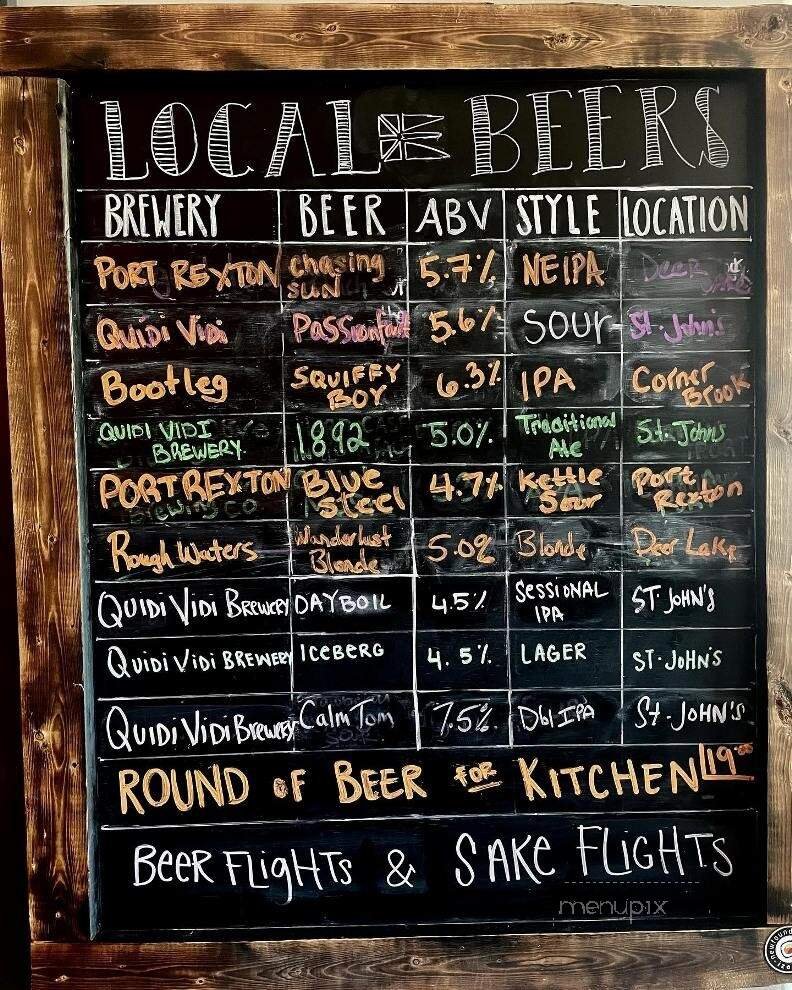 LOCAL BEERS
BREWERY BEER ABV STYLE LOCATION
PORT REXTON chasing SUN 5.7% NEIPA Deer Lake
Quidi Vidi Passionfruit 5.6% SOUR St. John's
Bootleg SQUIFFY BOY 6.3% IPA Corner Brook
QUIDI VIDI BREWERY 1892 5.0% Traditional Ale St. John's
PORT REXTON Brewing Co Blue Steel 4.7% Kettle Sour Port Rexton
Rough Waters Wanderlust Blonde 5.0% Blonde Deer Lake
QUIDI VIDI BREWERY DAYBOIL 4.5% SESSIONAL IPA ST JOHN'S
QUIDI VIDI BREWERY ICEBERG 4.5% LAGER ST. JOHN'S
QUIDI VIDI Brewery Calm Tom 7.5% Dbl IPA St. JOHN'S
ROUND OF BEER FOR KITCHEN 19.00
BEER FLIGHTS & SAKE FLIGHTS
menupix